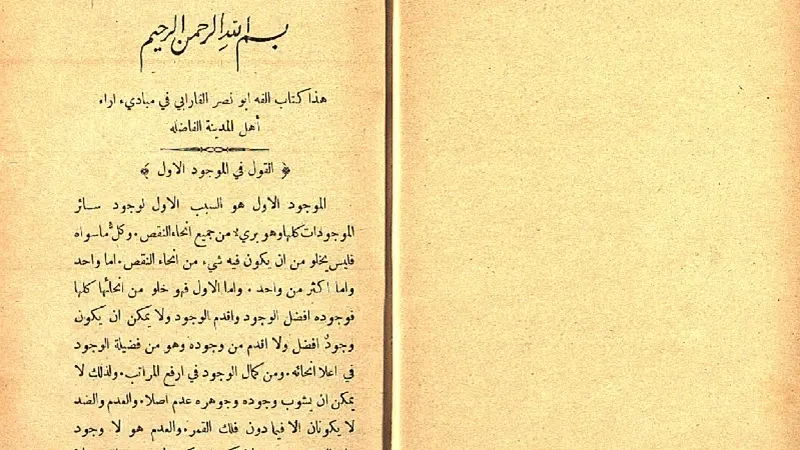 بسم الله الرحمن الرحيم
هذا كتاب الفه ابو نصر الفارابي في مباديء اراء
أهل المدينة الفاضله
﴿ القول في الموجود الاول ﴾
الموجود الاول هو السبب الاول لوجود سائر
الموجودات كلها وهو بريء من جميع انحاء النقص . وكل ما سواه
فليس يخلو من ان يكون فيه شيء من انحاء النقص . اما واحد
واما اكثر من واحد . واما الاول فهو خلو من انحائها كلها
فوجوده افضل الوجود واقدم الوجود ولا يمكن ان يكون
وجودٌ افضل ولا اقدم من وجوده وهو من فضيلة الوجود
في اعلا انحائه . ومن كمال الوجود في ارفع المراتب . ولذلك لا
يمكن ان يشوب وجوده وجوهره عدم اصلا . والعدم والضد
لا يكونان الا فيما دون فلك القمر . والعدم هو لا وجود